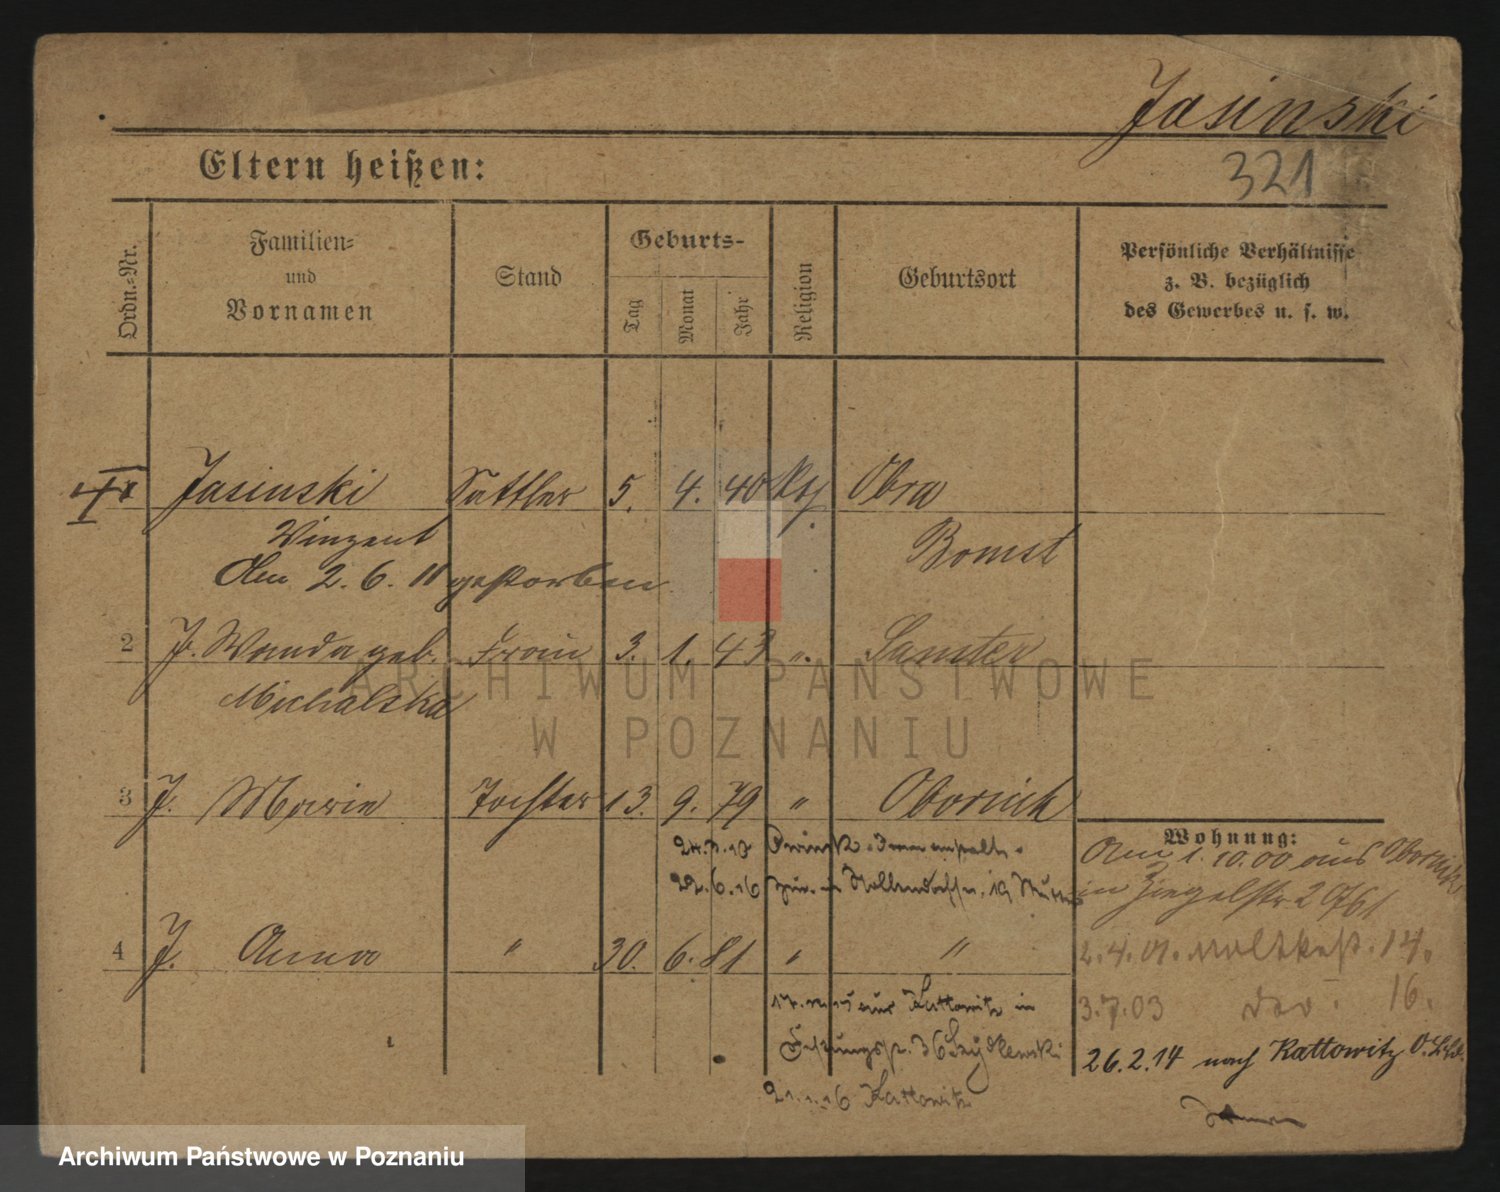 Jasinski
321
Eltern heißen:
Ordn.-Nr.
Familien-
und
Vornamen
Stand
Geburts-
Tag
Monat
Jahr
Religion
Geburtsort
Persönliche Verhältnisse
z. B. bezüglich
des Gewerbes u. s. w.
Jasinski Sattler 5. 4. 40 Obra
Vinzent Bomst
Am 2. 6. 11 gestorben
2 J. Wanda geb. Frau 3. 1. 43 ". Samter
Michalska
3 J. Marie Tochter 13. 9. 79 " Obornick
Wohnung:
Am 1.10.00 aus Obornik
in Ziegelstr 2
22.6.16
4 J. Anna " 30. 6. 81 " "
2.4.01. Moltkestr. 14.
3.7.03 16.
aus Kattowitz in
36
26.2.14 nach Kattowitz O.
Kattowitz
ARCHIWUM PAŃSTWOWE
W POZNANIU
Archiwum Państwowe w Poznaniu